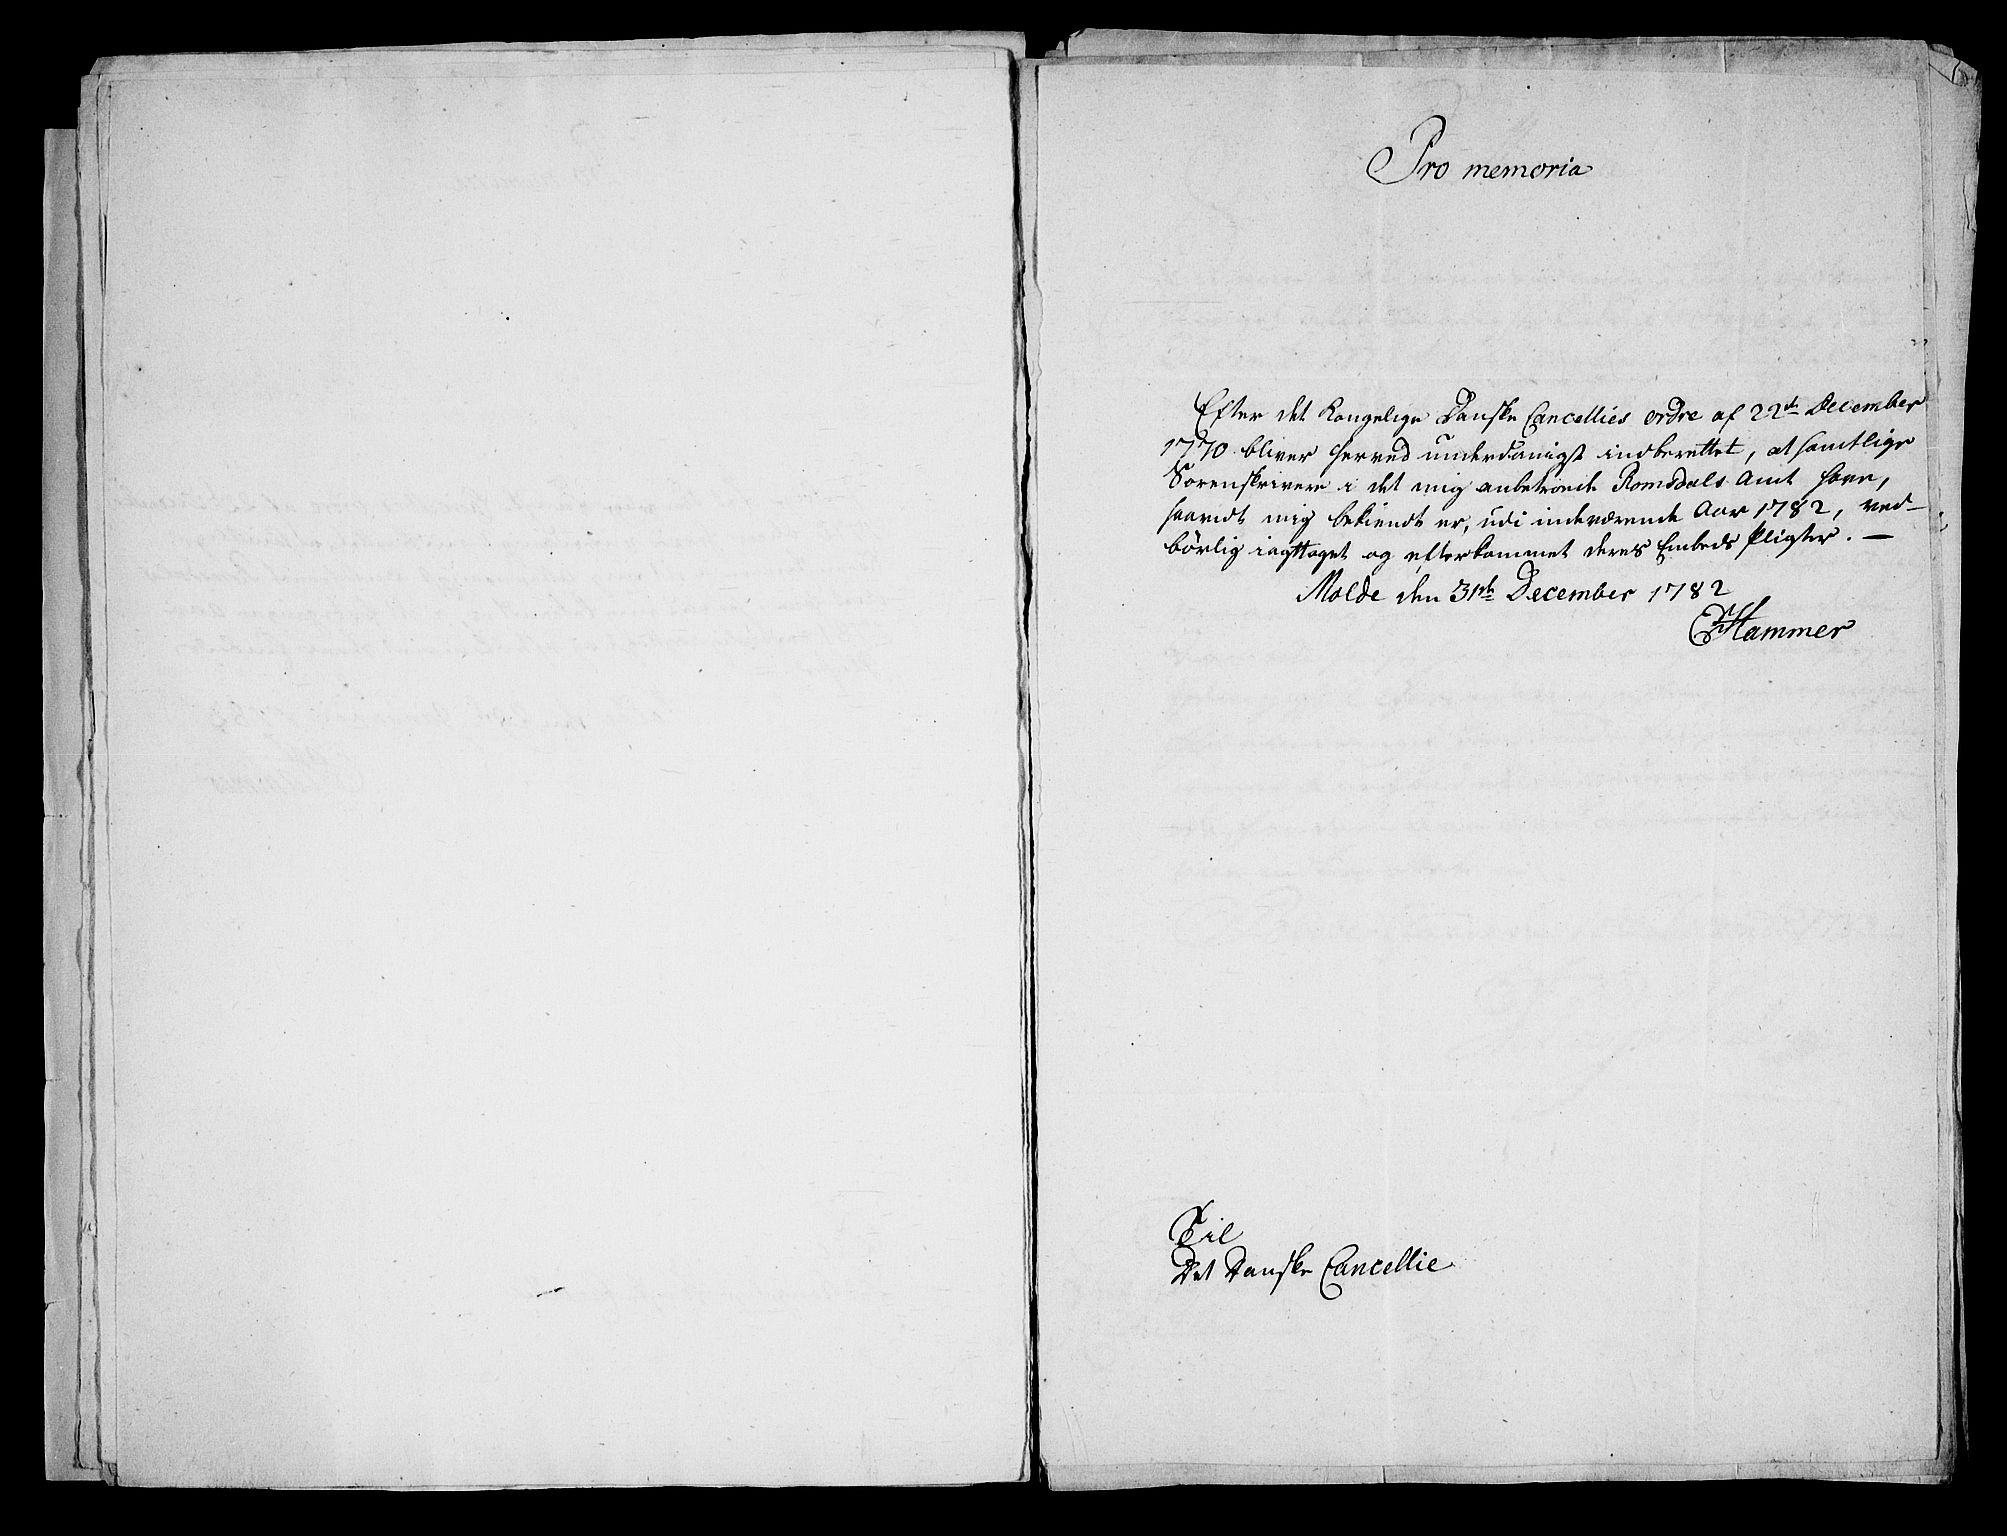 Pro memoria
Efter det Kongelige Danske Cancellies ordre af 22de December
1770 bliver herved underdanigst indberettet, at samtlige
Sorenskrivere i det mig anbetroede Romsdals Amt have,
saavidt mig bekiendt er, udi indeværende Aar 1782, ved-
børlig iagttaget og efterkommet deres Embeds Pligter. —
Molde den 31te December 1782
Hammer
Til
Det Danske Cancellie